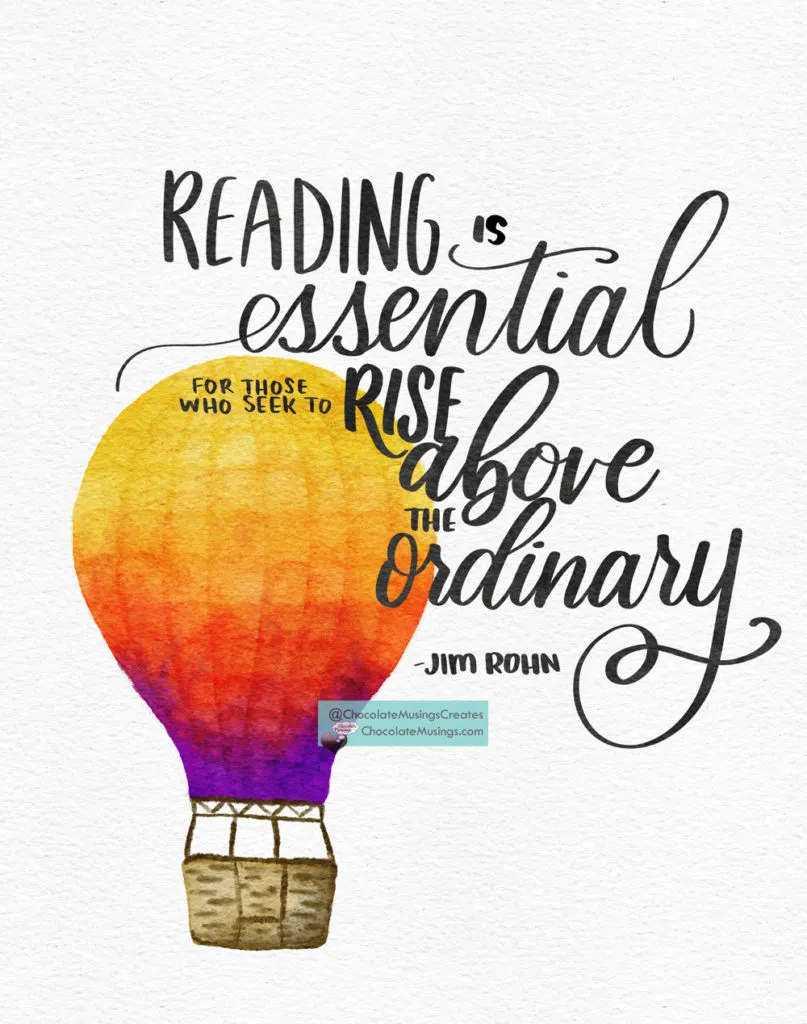 READING IS
essential
FOR THOSE
WHO SEEK TO RISE
above
THE
ordinary
-JIM ROHN
@ChocolateMusingsCreates
ChocolateMusings.com